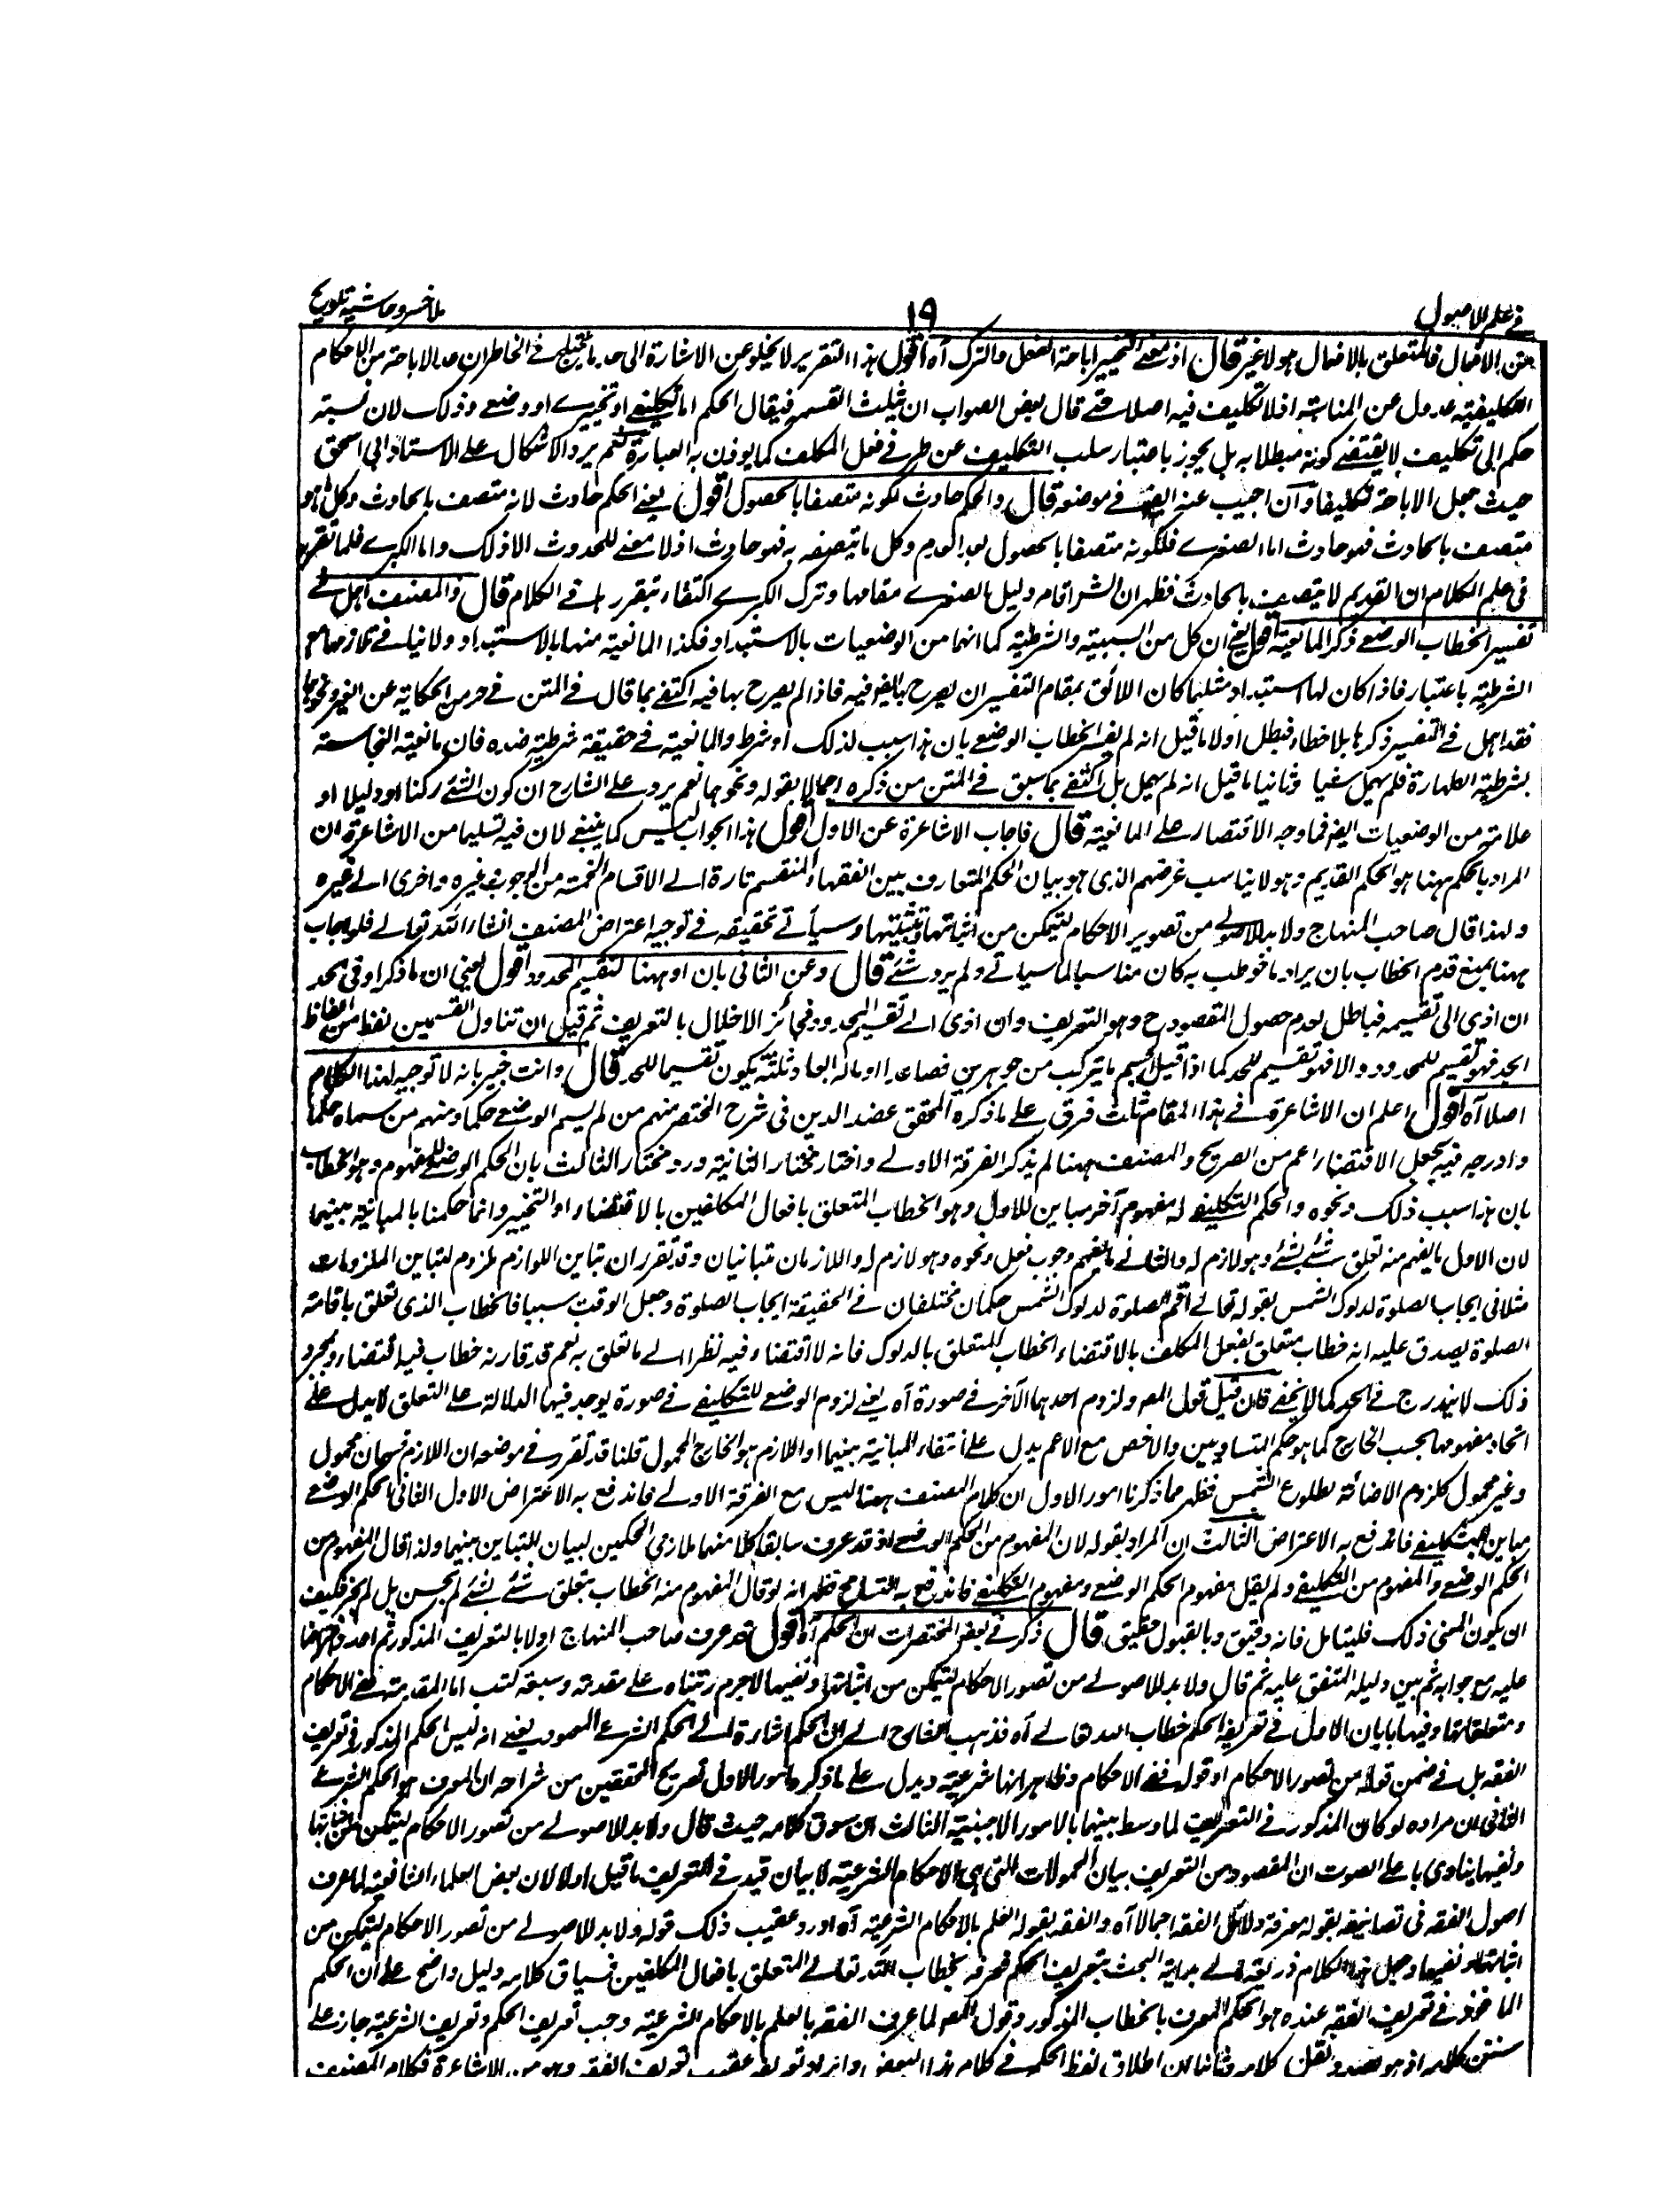 في علم الاصول
١٩
ملا خسرو حاشية تلويح
عن الافعال فالمتعلق بالافعال هو لا غير قال اذ معنى التخيير اباحة الفعل والترك آه اقول هذا التقرير لا يخلو عن الاشارة الى حد ما يختلج في الخاطر ان عد الاباحة من الاحكام
التكليفية عدول عن المناسبة اذ لا تكليف فيه اصلا حتى قال بعض الصواب ان يثلث القسمة فيقال الحكم اما تكليفي او تخييري او وضعي وذلك لان نسبة
حكم الى تكليف لا يقتضي كونه متطلبا به بل يجوز باعتبار سلب التكليف عن طرفي فعل المكلف كما يوذن به العبارة نعم يرد الاشكال على الاستاد ابي اسحق
حيث جعل الاباحة تكليفا وان اجيب عنه ايضا في موضعه قال والحكم حادث لكونه متصفا بالحصول اقول يعني الحكم حادث لانه متصف بالحادث وكل ما هو
متصف بالحادث فهو حادث اما الصغرى فلكونه متصفا بالحصول بعد العدم وكل ما يتصف به فهو حادث اذ لا معنى للحدوث الا ذلك واما الكبرى فلما تقرر
في علم الكلام ان القديم لا يتصف بالحادث فظهر ان الشر اقام دليل الصغرى مقامها وترك الكبرى اكتفاء بتقرره في الكلام قال والمصنف اهمل في
تفسير الخطاب الوضعي ذكر المانعية اقول يعني ان كل من السببية والشرطية كما انها من الوضعيات بالاستبداد فكذا المانعية منها بالاستبداد ولا ينافي تلازمها مع
الشرطية باعتبار فاذا كان لها استبداد مثلهما كان اللائق بمقام التفسير ان يصرح بها ايضا فيه فاذا لم يصرح بها فيه اكتفى بما قال في المتن في معرض الحكاية عن الغير ونحوها
فقد اهمل في التفسير ذكرها بلا خطاء فبطل اولا ما قيل انه لم يفسر الخطاب الوضعي بان هذا سبب لذلك او شرط والمانعية في حقيقة شرطية ضده فان مانعية النجاسة
بشرطية الطهارة فلم يهمل شيئا وثانيا ما قيل انه لم يهمل بل اكتفى بما سبق في المتن من ذكره اجمالا بقوله ونحوها نعم يرد على الشارح ان كون الشئ ركنا او دليلا او
علامة من الوضعيات ايضا فما وجه الاقتصار على المانعية قال فاجاب الاشاعرة عن الاول اقول هذا الجواب ليس كما ينبغي لان فيه تسليما من الاشاعرة ان
المراد بالحكم ههنا هو الحكم القديم وهو لا يناسب غرضهم الذي هو بيان الحكم المتعارف بين الفقهاء المنقسم تارة الى الاقسام الخمسة من الوجوب وغيره واخرى الى غيره
ولهذا قال صاحب المنهاج ولا بد للاصولي من تصوير الاحكام ليتمكن من اثباتها ونفيها وسيأتي تحقيقه في توجيه اعتراض المصنف انشاء الله تعالى فلو اجاب
ههنا بمنع قدم الخطاب بان يراد ما خوطب به كان مناسبا لما سيأتي ولم يرد شئ قال وعن الثاني بان او ههنا لتقسيم المحدود اقول يعني ان ما ذكر او في الحد
ان ادى الى تقسيمه فباطل لعدم حصول المقصود ح وهو التعريف وان ادى الى تقسيم المحدود فجائز لا اخلال بالتعريف ثم قيل ان تناول القسمين لفظ من الفاظ
الحد فهو تقسيم للمحدود والا فهو تقسيم للحد كما اذا قيل الجسم ما يتركب من جوهرين فصاعدا او ما له ابعاد ثلثة يكون تقسيما للحد قال وانت خبير بانه لا توجيه لهذا الكلام
اصلا آه اقول اعلم ان الاشاعرة في هذا المقام ثلث فرق على ما ذكره المحقق عضد الدين في شرح المختصر منهم من لم يسم الوضعي حكما ومنهم من سماه حكما
وادرجه فيه بجعل الاقتضاء اعم من الصريح والمصنف ههنا لم يذكر الفرقة الاولى واختار مختار الثانية ورد مختار الثالث بان الحكم الوضعي له مفهوم وهو الخطاب
بان هذا سبب ذلك ونحوه والحكم التكليفي له مفهوم آخر مباين للاول وهو الخطاب المتعلق بافعال المكلفين بالاقتضاء او التخيير وانما حكمنا بالمباينة بينهما
لان الاول ما يفهم منه تعلق شئ بشئ وهو لازم له والثاني ما يفهم وجوب فعل ونحوه وهو لازم له واللازمان متباينان وقد تقرر ان تباين اللوازم ملزوم لتباين الملزومات
مثلا في ايجاب الصلوة لدلوك الشمس بقوله تعالى اقم الصلوة لدلوك الشمس حكمان مختلفان في الحقيقة ايجاب الصلوة وجعل الوقت سببا فالخطاب الذي تعلق باقامة
الصلوة يصدق عليه انه خطاب متعلق بفعل المكلف بالاقتضاء الخطاب المتعلق بالدلوك فانه لا اقتضاء فيه نظرا الى ما تعلق به نعم قد قارنه خطاب فيه اقتضاء ومجرد
ذلك لا يندرج في الحد كما لا يخفى فان قيل قول المصـ ولزوم احدهما الآخر في صورة آه يعني لزوم الوضعي للتكليفي في صورة يوجد فيها الدلالة على التعلق لا يدل على
اتحاد مفهومهما بحسب الخارج كما هو حكم المتساويين والاخص مع الاعم يدل على انتفاء المباينة بينهما او اللازم هو الخارج المحمول قلنا قد تقرر في موضعه ان اللازم قسمان محمول
وغير محمول كلزوم الاضاءة لطلوع الشمس فظهر مما ذكرنا امور الاول ان كلام المصنف ههنا ليس مع الفرقة الاولى فاندفع به الاعتراض الاول الثاني ان الحكم الوضعي
مباين للتكليفي فاندفع به الاعتراض الثالث ان المراد بقوله لان المفهوم من الحكم الوضعي اذ قد عرف سابقا كلا منهما ملازمي الحكمين لبيان التباين بينهما ولذا قال المفهوم من
الحكم الوضعي والمفهوم من التكليفي ولم يقل مفهوم الحكم الوضعي ومفهوم التكليفي فاندفع به التسامح فظهر انه لو قال المفهوم منه الخطاب بتعلق شئ بشئ لم يحسن بل لم يجز فكيف
ان يكون المعنى ذلك فليتأمل فانه دقيق وبالقبول حقيق قال ذكر في بعض المختصرات ان الحكم آه اقول قد عرف صاحب المنهاج اولا بالتعريف المذكور ثم اورد
عليه مع جوابه ثم بين دليله المتفق عليه ثم قال ولا بد للاصولي من تصور الاحكام ليتمكن من اثباتها ونفيها لا جرم رتبناه على مقدمة وسبعة كتب اما المقدمة ففي الاحكام
ومتعلقاتها وفيها بابان الاول في تعريف الحكم خطاب الله تعالى آه فذهب الشارح الى ان الحكم اشارة الى الحكم الشرعي المعهود يعني انه ليس الحكم المذكور في تعريف
الفقه بل في ضمن قوله من تصور الاحكام او قوله ففي الاحكام وظاهر انها شرعية ويدل على ما ذكر امور الاول تصريح المحققين من شراحه ان المعرف هو الحكم الشرعي
الثاني ان مراده لو كان المذكور في التعريف لما وسط بينهما بالامور الاجنبية الثالث ان سوق كلامه حيث قال ولا بد للاصولي من تصور الاحكام ليتمكن من اثباتها
ونفيها ينادي باعلى الصوت ان المقصود من التعريف بيان المحمولات التي هي الاحكام الشرعية لا بيان قيد في التعريف ما قيل اولا لان بعض العلماء الشافعية لما عرف
اصول الفقه في تصانيفه بقوله معرفة دلائل الفقه اجمالا آه والفقه بقوله العلم بالاحكام الشرعية آه اورد عقيب ذلك قوله ولا بد للاصولي من تصور الاحكام ليتمكن من
اثباتها ونفيها وجعل هذا الكلام ذريعة الى بداية البحث بتعريف الحكم فعرفه بخطاب الله تعالى المتعلق بافعال المكلفين فسياق كلامه دليل واضح على ان الحكم
الماخوذ في تعريف الفقه عنده هو الحكم المعرف بالخطاب المذكور وقول المصـ لما عرف الفقه بالعلم بالاحكام الشرعية وجب تعريف الحكم وتعريف الشرعية جاز على
سنن كلامه اذ هو بصدد نقل كلامه وثانيا ان اطلاق لفظ الحكم في كلام هذا البعض وايراد تعريفه عقيب تعريف الفقه وهو من الاشاعرة فكلام المصنف